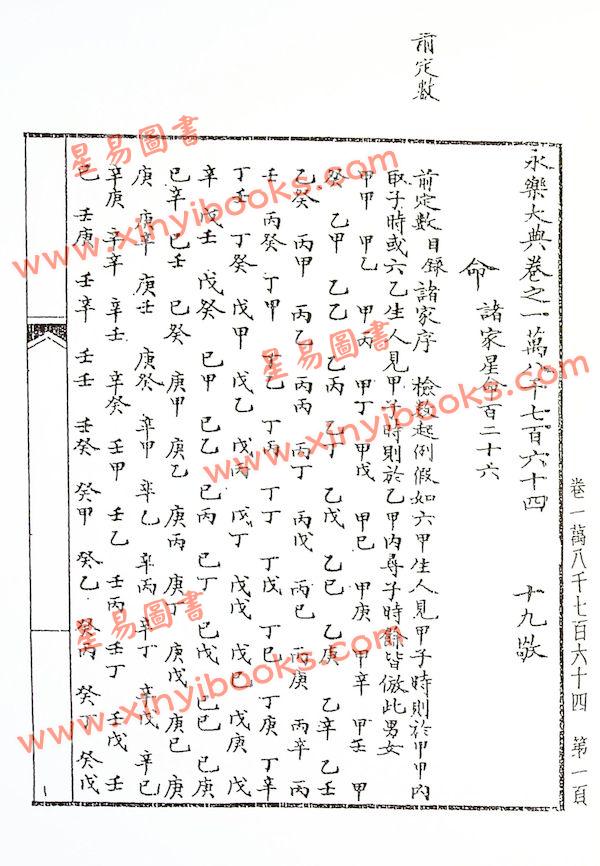 前定數
卷一萬八千七百六十四 第一頁
永樂大典卷之一萬八千七百六十四 十九敬
命 諸家星命百二十六
前定數目錄 諸家序 檢數起例假如六甲生人見甲子時則於甲甲内
取子時或六乙生人見甲子時則於乙甲内尋子時餘皆倣此男女
甲甲 甲乙 甲丙 甲丁 甲戊 甲巳 甲庚 甲辛 甲壬 甲
癸 乙甲 乙乙 乙丙 乙丁 乙戊 乙巳 乙庚 乙辛 乙壬
乙癸 丙甲 丙乙 丙丙 丙丁 丙戊 丙巳 丙庚 丙辛 丙
壬 丙癸 丁甲 丁乙 丁丙 丁丁 丁戊 丁巳 丁庚 丁辛
丁壬 丁癸 戊甲 戊乙 戊丙 戊丁 戊戊 戊巳 戊庚 戊
辛 戊壬 戊癸 巳甲 巳乙 巳丙 巳丁 巳戊 巳巳 巳庚
巳辛 巳壬 巳癸 庚甲 庚乙 庚丙 庚丁 庚戊 庚巳 庚
庚 庚辛 庚壬 庚癸 辛甲 辛乙 辛丙 辛丁 辛戊 辛巳
辛庚 辛辛 辛壬 辛癸 壬甲 壬乙 壬丙 壬丁 壬戊 壬
巳 壬庚 壬辛 壬壬 壬癸 癸甲 癸乙 癸丙 癸丁 癸戊
星易圖書
www.xinyibooks.com
星易圖書
www.xinyibooks.com
星易圖書
www.xinyibooks.com